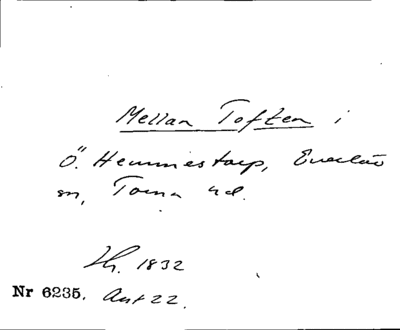 Mellan Toften i
Ö. Hemmestorp, Everlöv
sn, Torna hd.
Lh. 1832
Nr 6235. Akt 22.